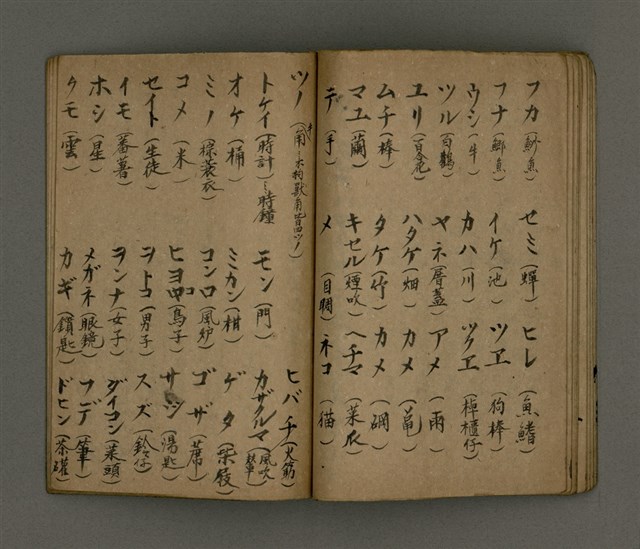 フカ(魦魚) セミ(蟬) ヒレ(魚鰭)
フナ(鯽魚) イケ(池) ツヱ(拘棒)
ウシ(牛) カハ(川) ツクヱ(棹櫃仔)
ツル(白鶴) ヤネ(厝蓋) アメ(雨)
ユリ(百合花) ハタケ(畑) カメ(龜)
ムチ(棒) タケ(竹) カメ
マユ(繭) キセル(煙吹) ヘチマ(菜瓜)
テ(手) メ(目睭) ネコ(猫)
ツノ(角
トケイ(時計)時鐘 モン(門) ヒバチ(火筯)
オケ(桶) ミカン(柑) カザグルマ(風吹
ミノ(棕蓑衣) コンロ(風炉) ゲタ(柴屐)
コメ(米) ヒヨコ(鳥子) ゴザ(蓆)
セイト(生徒) ヲトコ(男子) サジ(湯匙)
イモ(蕃薯) ヲンナ(女子) スズ(鈴仔)
ホシ(星) メガネ(眼鏡) ダイコン(菜頭)
クモ(雲) カギ(鎖匙) フデ(筆)
ドビン(茶罐)